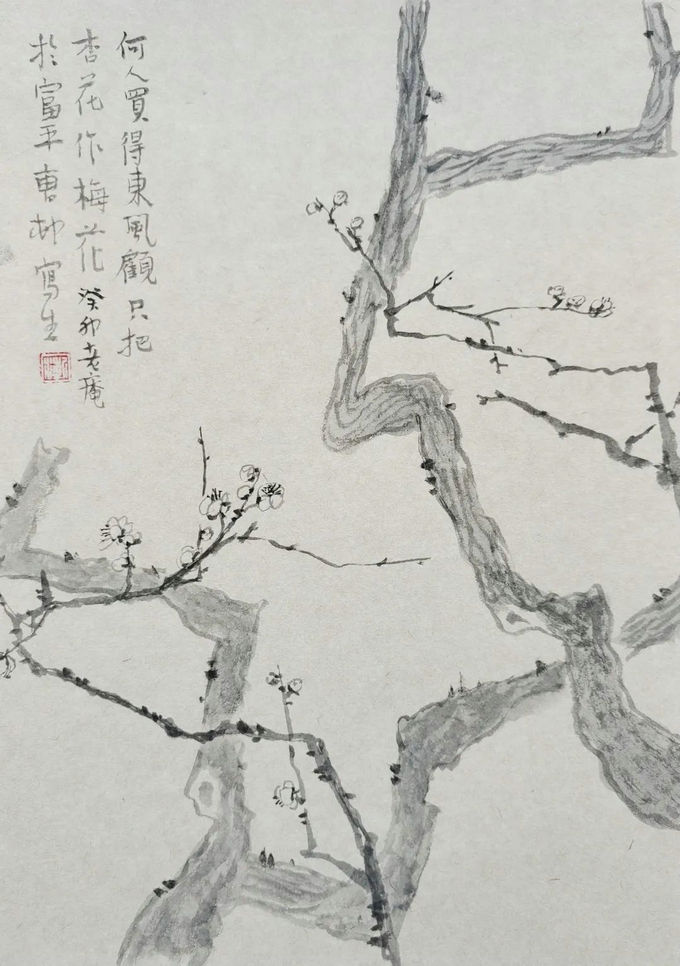 何人買得東風顧只把
杏花作梅花癸卯老庵
於富平曹村寫生